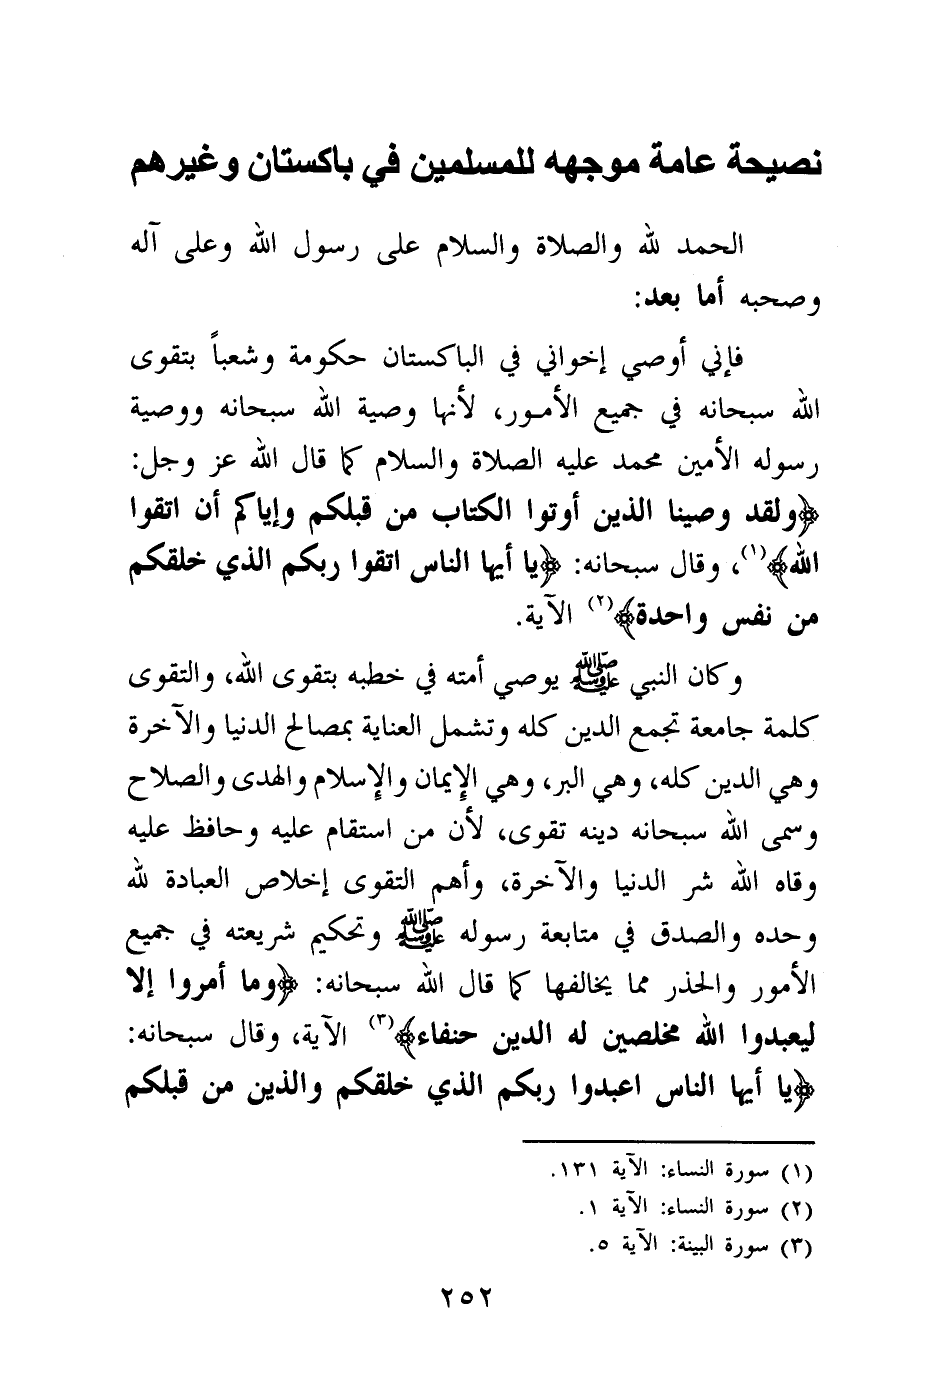 نصيحة عامة موجهه للمسلمين في باكستان وغيرهم
الحمد لله والصلاة والسلام على رسول الله وعلى آله
وصحبه أما بعد:
فإني أوصي إخواني في الباكستان حكومة وشعباً بتقوى
الله سبحانه في جميع الأمور، لأنها وصية الله سبحانه ووصية
رسوله الأمين محمد عليه الصلاة والسلام كما قال الله عز وجل:
﴿ولقد وصينا الذين أوتوا الكتاب من قبلكم وإياكم أن اتقوا
الله﴾(١)، وقال سبحانه: ﴿يا أيها الناس اتقوا ربكم الذي خلقكم
من نفس واحدة﴾(٢) الآية.
وكان النبي ﷺ يوصي أمته في خطبه بتقوى الله، والتقوى
كلمة جامعة تجمع الدين كله وتشمل العناية بمصالح الدنيا والآخرة
وهي الدين كله، وهي البر، وهي الإيمان والإسلام والهدى والصلاح
وسمى الله سبحانه دينه تقوى، لأن من استقام عليه وحافظ عليه
وقاه الله شر الدنيا والآخرة، وأهم التقوى إخلاص العبادة لله
وحده والصدق في متابعة رسوله ﷺ وتحكيم شريعته في جميع
الأمور والحذر مما يخالفها كما قال الله سبحانه: ﴿وما أمروا إلا
ليعبدوا الله مخلصين له الدين حنفاء﴾(٣) الآية، وقال سبحانه:
﴿يا أيها الناس اعبدوا ربكم الذي خلقكم والذين من قبلكم
(١) سورة النساء: الآية ١٣١.
(٢) سورة النساء: الآية ١.
(٣) سورة البينة: الآية ٥.
٢٥٢